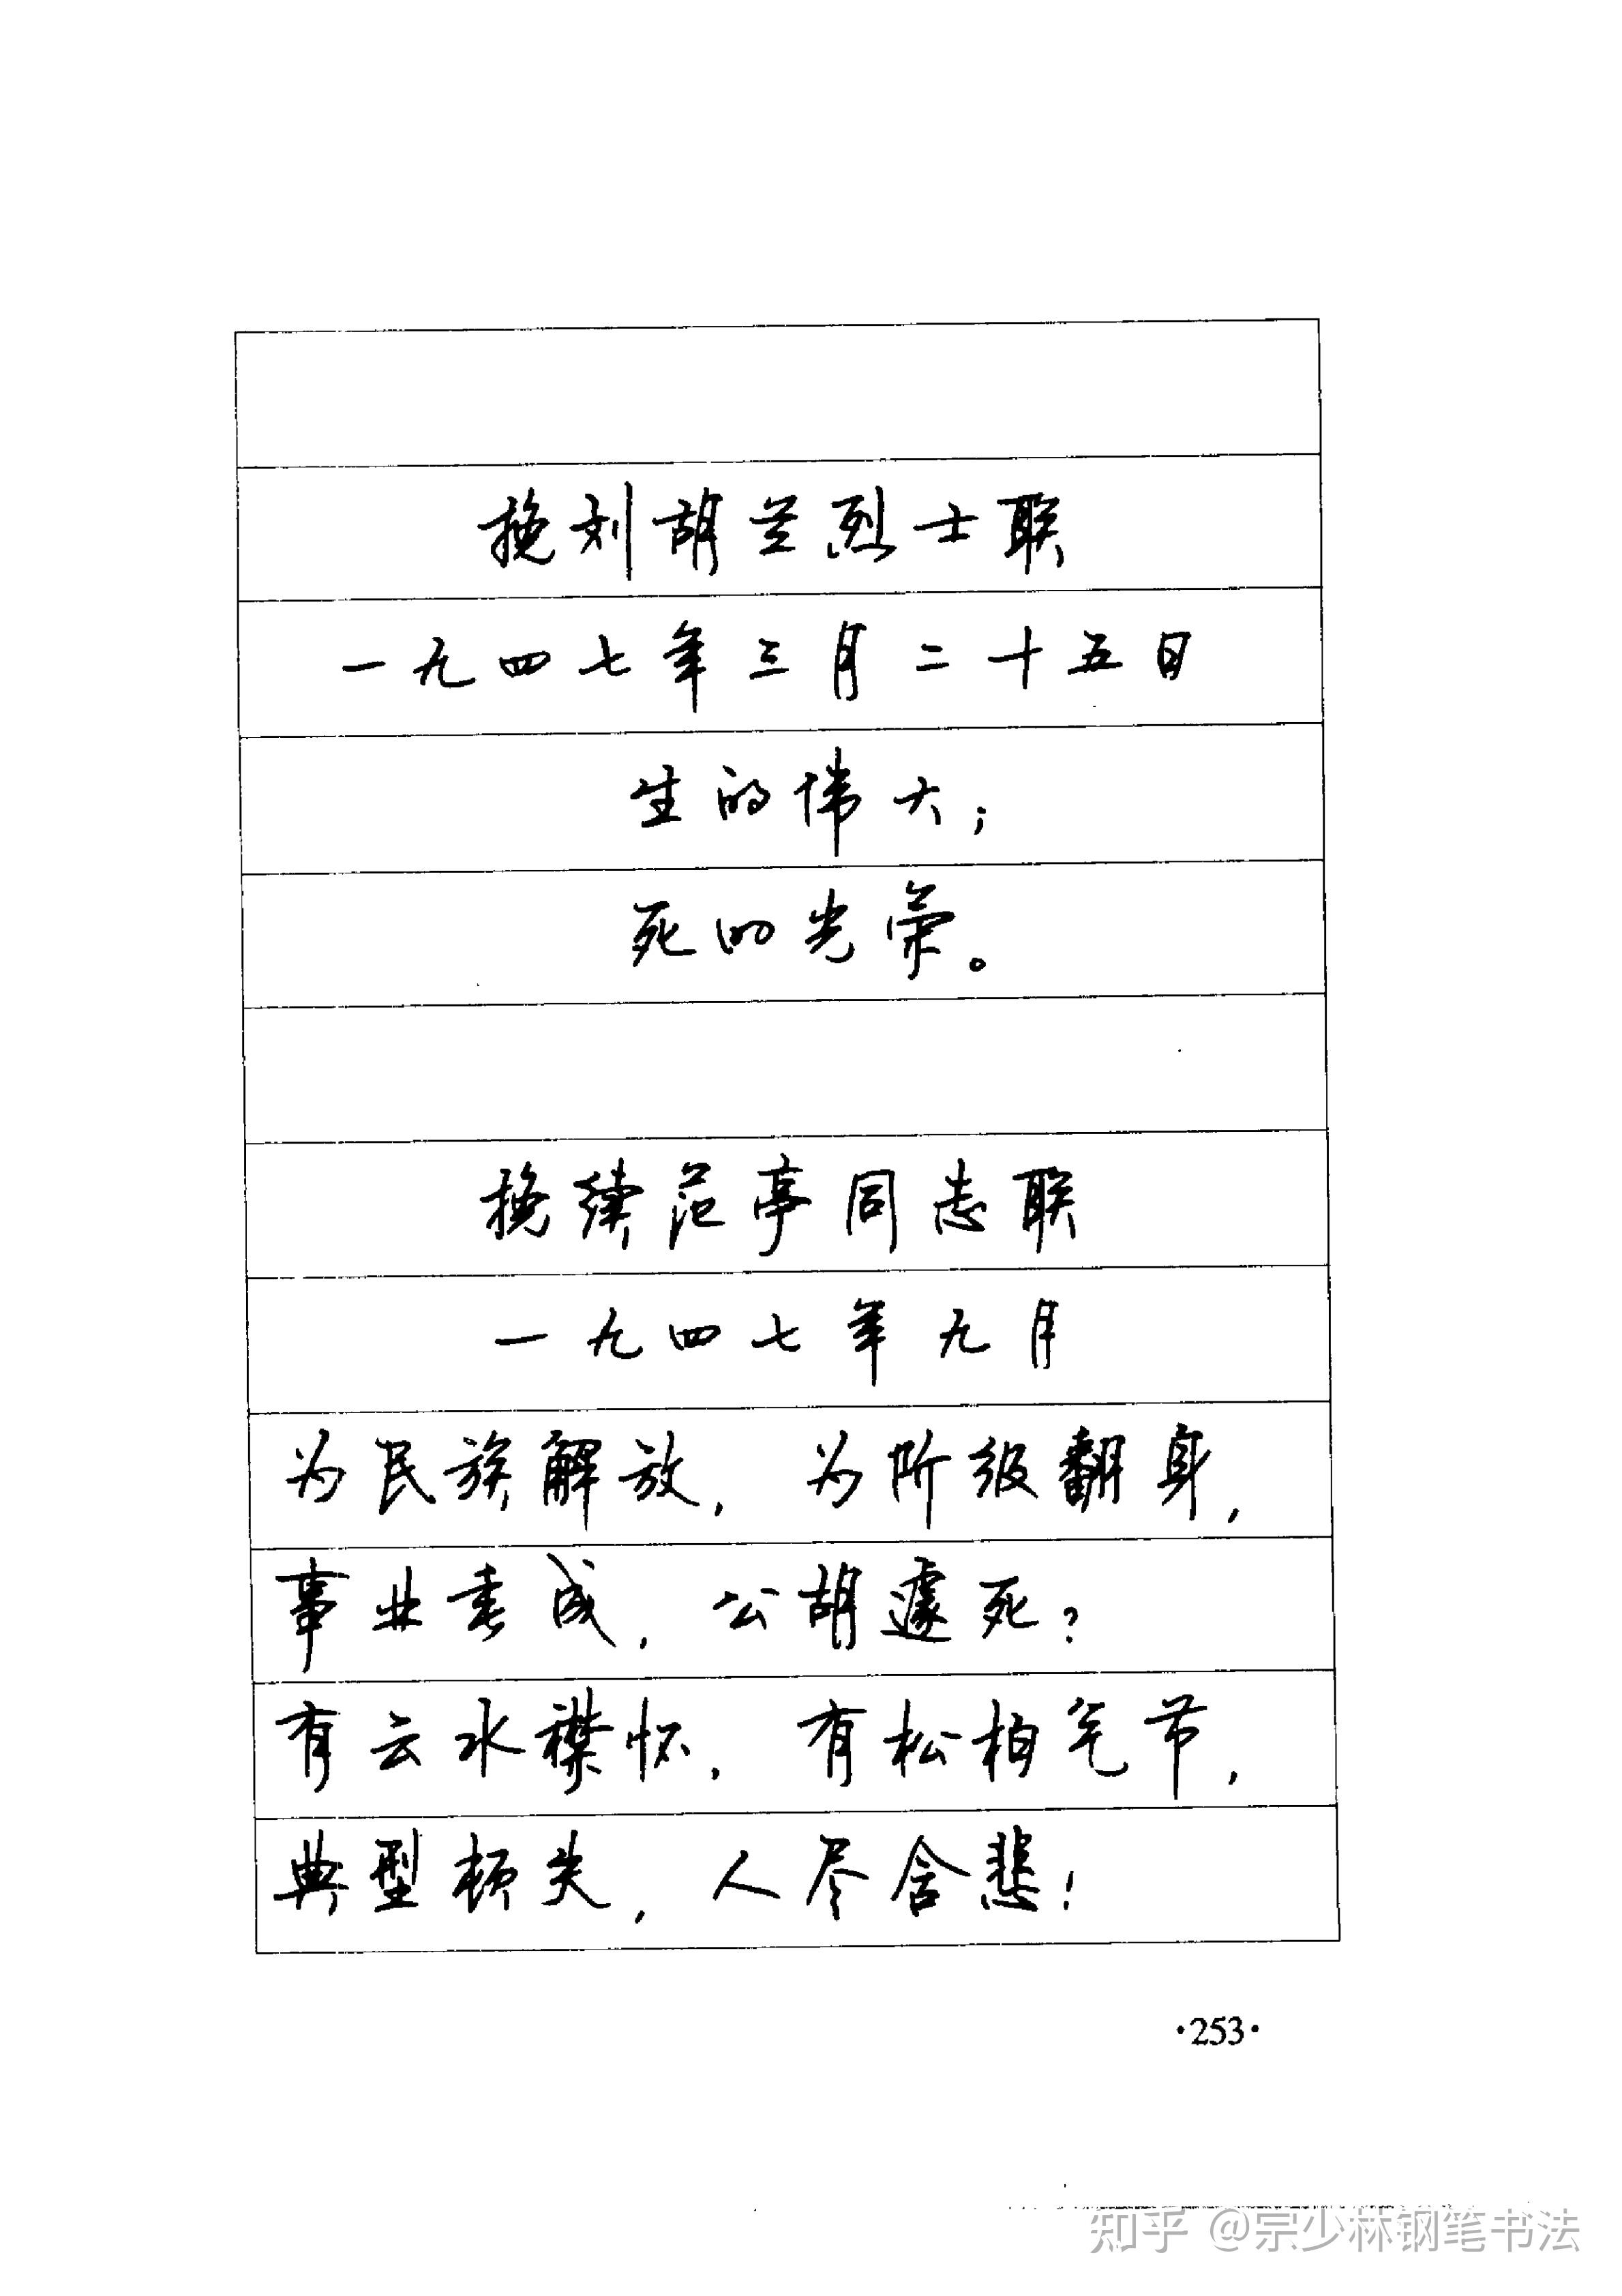 挽刘胡兰烈士联
一九四七年三月二十五日
生的伟大；
死的光荣。
挽续范亭同志联
一九四七年九月
为民族解放，为阶级翻身，
事业垂成，公胡遽死？
有云水襟怀，有松柏气节，
典型顿失，人尽含悲！
·253·
知乎 @宗少林钢笔书法